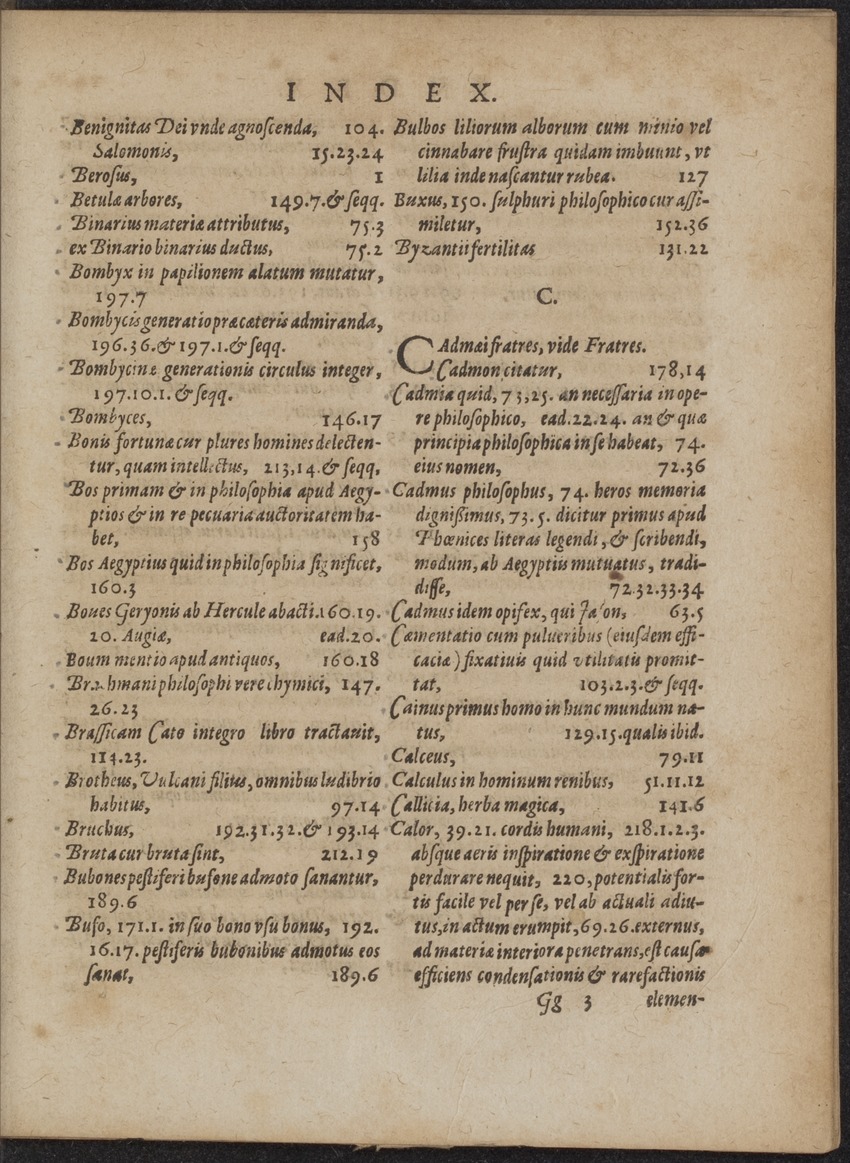 INDEX.
Benignitas Dei vnde agnoſcenda, 104.
Salomonis, 15.23.24
Beroſus, 1
Betulæ arbores, 149.7.& ſeqq.
Binarius materiæ attributus, 75.3
ex Binario binarius ductus, 75.2
Bombyx in papilionem alatum mutatur,
197.7
Bombycis generatio præ cæteris admiranda,
196.36.& 197.1.& ſeqq.
Bombycinæ generationis circulus integer,
197.10.1. & ſeqq.
Bombyces, 146.17
Bonis fortunæ cur plures homines delecten-
tur, quam intellectus, 213,14.& ſeqq.
Bos primam & in philoſophia apud Aegy-
ptios & in re pecuaria auctoritatem ha-
bet, 158
Bos Aegyptius quid in philoſophia ſignificet,
160.3
Boues Geryonis ab Hercule abacti.160.19.
20. Augiæ, ead.20.
Boum mentio apud antiquos, 160.18
Brachmani philoſophi vere chymici, 147.
26.23
Braſſicam Cato integro libro tractauit,
114.23.
Brotheus, Vulcani filius, omnibus ludibrio
habitus, 97.14
Bruchus, 192.31.32.& 193.14
Bruta cur bruta ſint, 212.19
Bubones peſtiferi bufone admoto ſanantur,
189.6
Bufo, 171.1. in ſuo bono vſu bonus, 192.
16.17. peſtiferis bubonibus admotus eos
ſanat, 189.6
Bulbos liliorum alborum cum minio vel
cinnabare fruſtra quidam imbuunt, vt
lilia inde naſcantur rubea. 127
Buxus, 150. ſulphuri philoſophico cur aſſi-
miletur, 152.36
Byzantii fertilitas 131.22
C.
CAdmæi fratres, vide Fratres.
Cadmon citatur, 178,14
Cadmia quid, 73,25. an neceſſaria in ope-
re philoſophico, ead.22.24. an & quæ
principia philoſophica in ſe habeat, 74.
eius nomen, 72.36
Cadmus philoſophus, 74. heros memoria
digniſſimus, 73.5. dicitur primus apud
Phœnices literas legendi, & ſcribendi,
modum, ab Aegyptiis mutuatus, tradi-
diſſe, 72.32.33.34
Cadmus idem opifex, qui Jaſon, 63.5
Cæmentatio cum pulueribus (eiuſdem effi-
caciæ) fixatiuis quid vtilitatis promit-
tat, 103.2.3.& ſeqq.
Cainus primus homo in hunc mundum na-
tus, 129.15.qualis ibid.
Calceus, 79.11
Calculus in hominum renibus, 51.11.12
Callicia, herba magica, 141.6
Calor, 39.21. cordis humani, 218.1.2.3.
abſque aeris inſpiratione & exſpiratione
perdurare nequit, 220, potentialis for-
tis facile vel per ſe, vel ab actuali adiu-
tus, in actum erumpit, 69.26.externus,
ad materiæ interiora penetrans, eſt cauſa
efficiens condenſationis & rarefactionis
Gg 3 elemen-